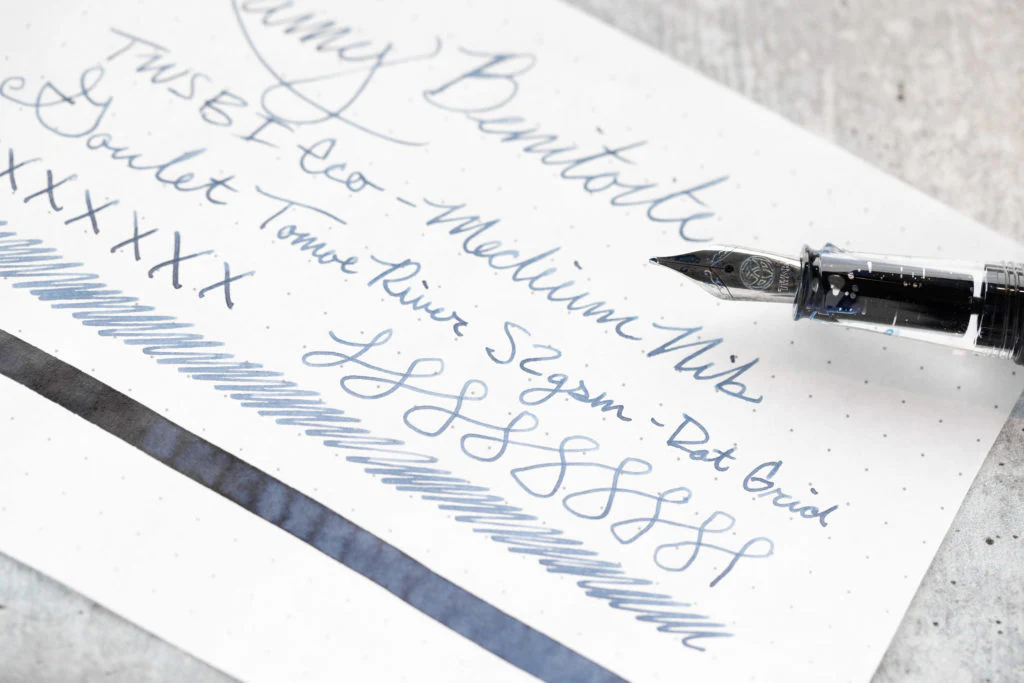 Benitoite
TWSBI Eco - Medium Nib
Goulet Tomoe River 52gsm - Dot Grid
X X X X X X